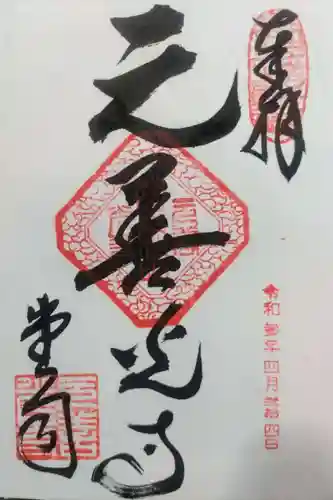 奉拝
元善光寺
令和参年四月弐拾四日